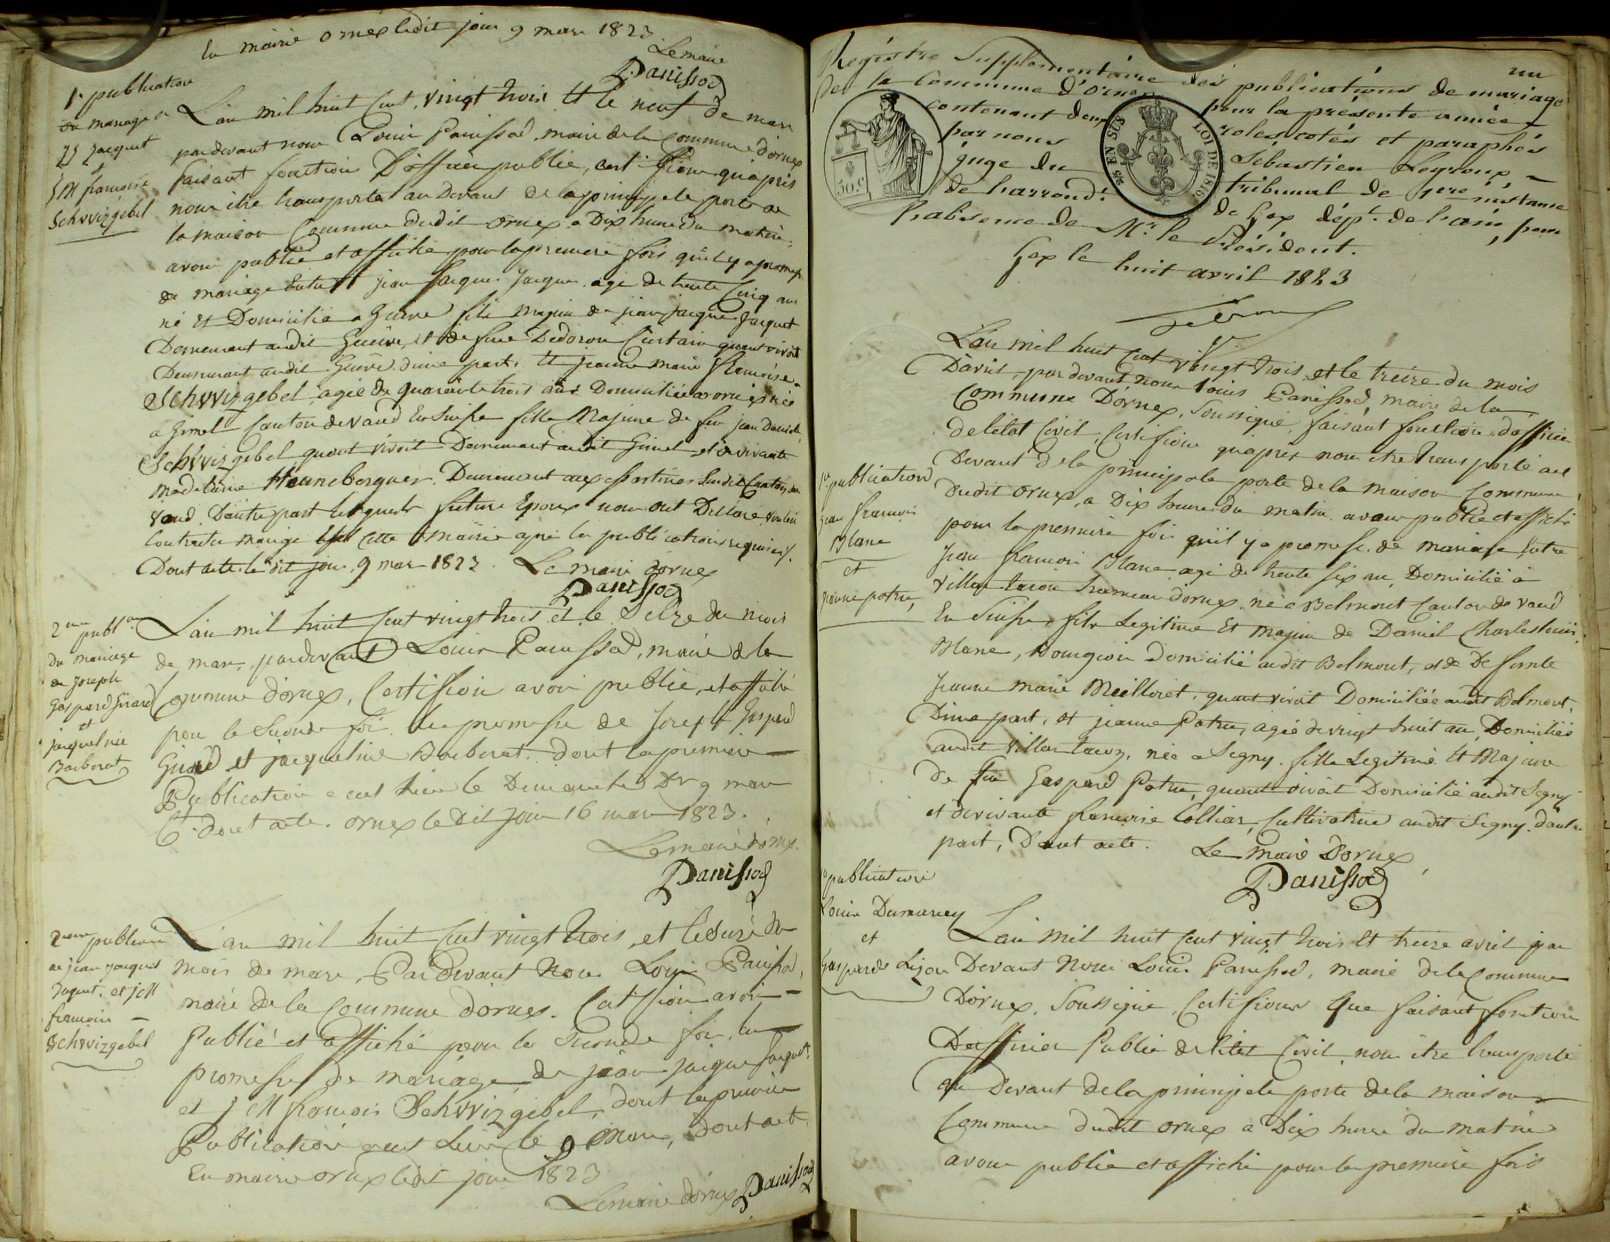 En mairie ornex ledit jour 9 mars 1823
Le maire
Panissod
1e publication
du mariage de
JJ Jacquet
et
J M françoise
Schwizgebel
L'an mil huit Cent vingt trois et le neuf de mars
pardevant nous Louis Panissod, maire de la Commune d'ornex
faisant fonction D'officier public, certifions qu'après
nous être transporté au Devant de la principale porte de
la maison Commune dudit ornex a Dix heures du matin,
avoir publié et affiché pour la premiere fois qu'il y a promesse
de mariage entre jean jaques Jacquet agé de trente Cinq ans
né et Domicilié a fils majeur de jean jaques Jacquet
Demeurant audit et de feue quant vivait
Demeurant audit d'une part, et jeanne marie françoise
Schwizgebel agée de quarante trois ans Domiciliée a ornex née
a Gimel Canton de vaud En Suisse fille Majeure de feu jean David
Schwizgebel quant vivoit Demeurant audit Gimel, et de vivante
Madelaine Henneberguer Demeurant aux Susdit Canton de
vaud D'autre part lesquels futurs Epoux nous ont Déclaré vouloir
Contracter mariage cette mairie après les publications requises.
Dont acte ledit jour 9 mars 1823. Le maire d'ornex
Panissod
2me publ.on
du mariage
de joseph
Gaspard Girard
et
jacqueline
Barberat
L'an mil huit Cent vingt trois et le Seize du mois
de mars, pardevant Louis Panissod, maire de la
Commune d'ornex, Certifions avoir publié, et affiché
pour la seconde fois la promesse de Joseph Gaspard
Girard et jacqueline Barberat dont la premiere
Publication a eut lieu le Dimanche Dr 9 mars
Ct. dont acte. ornex ledit jour 16 mars 1823.
Le maire d'ornex.
Panissod
2eme publication
de jean jacques
Jaquet, et J M
francoise
Schwizgebel
L'an mil huit Cent vingt trois, et le seize du
mois de mars, Pardevant Nous Louis Panissod,
maire de la Commune d'ornex. Certifions avoir
Publié et affiché pour la Seconde fois, la
promesse de mariage de jean jaques Jacquet
et J M francoise Schwizgebel, dont la premiere
Publication a eut Lieu le 9 Mars, dont acte
En mairie ornex ledit jour 1823
Le maire d'ornex Panissod
un
Régistre Supplémentaire des publications de mariage
De la Commune d'ornex pour la présente année
contenant deux roles cotés et paraphés
par nous Sébastien
juge du tribunal de 1ere instance
de l'arrond.t de Gex dép.t de l'ain, pour
l'absence de Mr. le Président.
Gex le huit avril 1823
50.c
EN SUS
LOI DE 1816
L'an mil huit Cent vingt trois et le treize du mois
D'avril, pardevant nous Louis Panissod, maire de la
Commune D'ornex, soussigné, faisant fonction d'officier
de l'état Civil Certifions qu'après nous être transporté au
Devant de la principale porte de la maison Commune
Dudit ornex, a Dix heures du matin avoir publié et affiché
pour la premiere fois qu'il y a promesse de mariage Entre
1e publication
jean francois
Blanc
et
jeanne potru
Jean françois Blanc agé de trente six ans, Domicilié à
Villar tacon hameau d'ornex né a Belmont Canton de vaud
En Suisse, fils Legitime Et majeur de Daniel Charles Louis
Blanc, Bourgeois domicilié audit Belmont, et de Defunte
Jeanne marie quant vivoit Domiciliée audit Belmont.
D'une part, et jeanne Potru, agée de vingt huit ans, Domiciliée
audit villar tacon, née a Segny fille Legitime Et Majeure
De feu Gaspard Potru, quant vivoit Domicilié audit Segny
et de vivante françoise Cultivatrice audit Segny d'autre
part, Dont acte. Le Maire D'ornex
Panissod
publication
Louis Dumarey
et
Gasparde
L'an mil huit Cent vingt trois et treize avril par
Devant Nous Louis Panissod, maire de la Commune
D'ornex, Soussigné, Certifions Que faisant fonction
D'officier Public de l'état Civil, nous être transporté
au Devant de la principale porte de la maison
Commune dudit ornex à Dix heures du matin
avoir publié et affiché pour la premiere fois